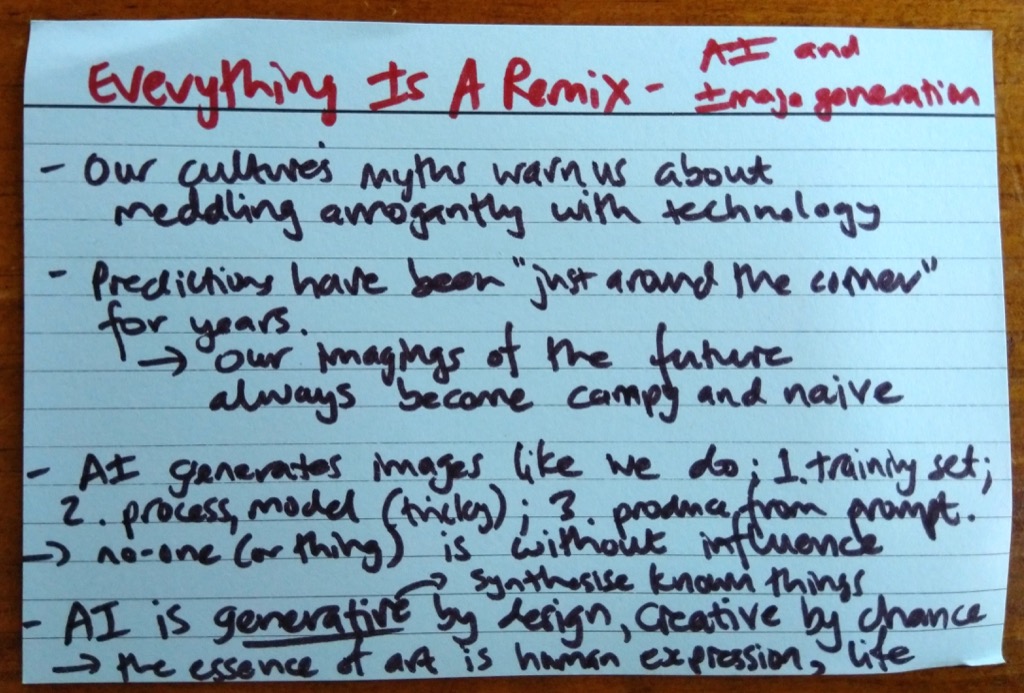 Everything Is A Remix - AI and
Image generation
- Our culture's myths warn us about
meddling arrogantly with technology
- Predictions have been "just around the corner"
for years.
→ Our imagings of the future
always become campy and naive
- AI generates images like we do; 1. training set;
2. process, model (tricky); 3. produce from prompt.
→ no-one (or thing) is without influence
→ synthesise known things
- AI is generative by design, creative by chance
→ the essence of art is human expression, life